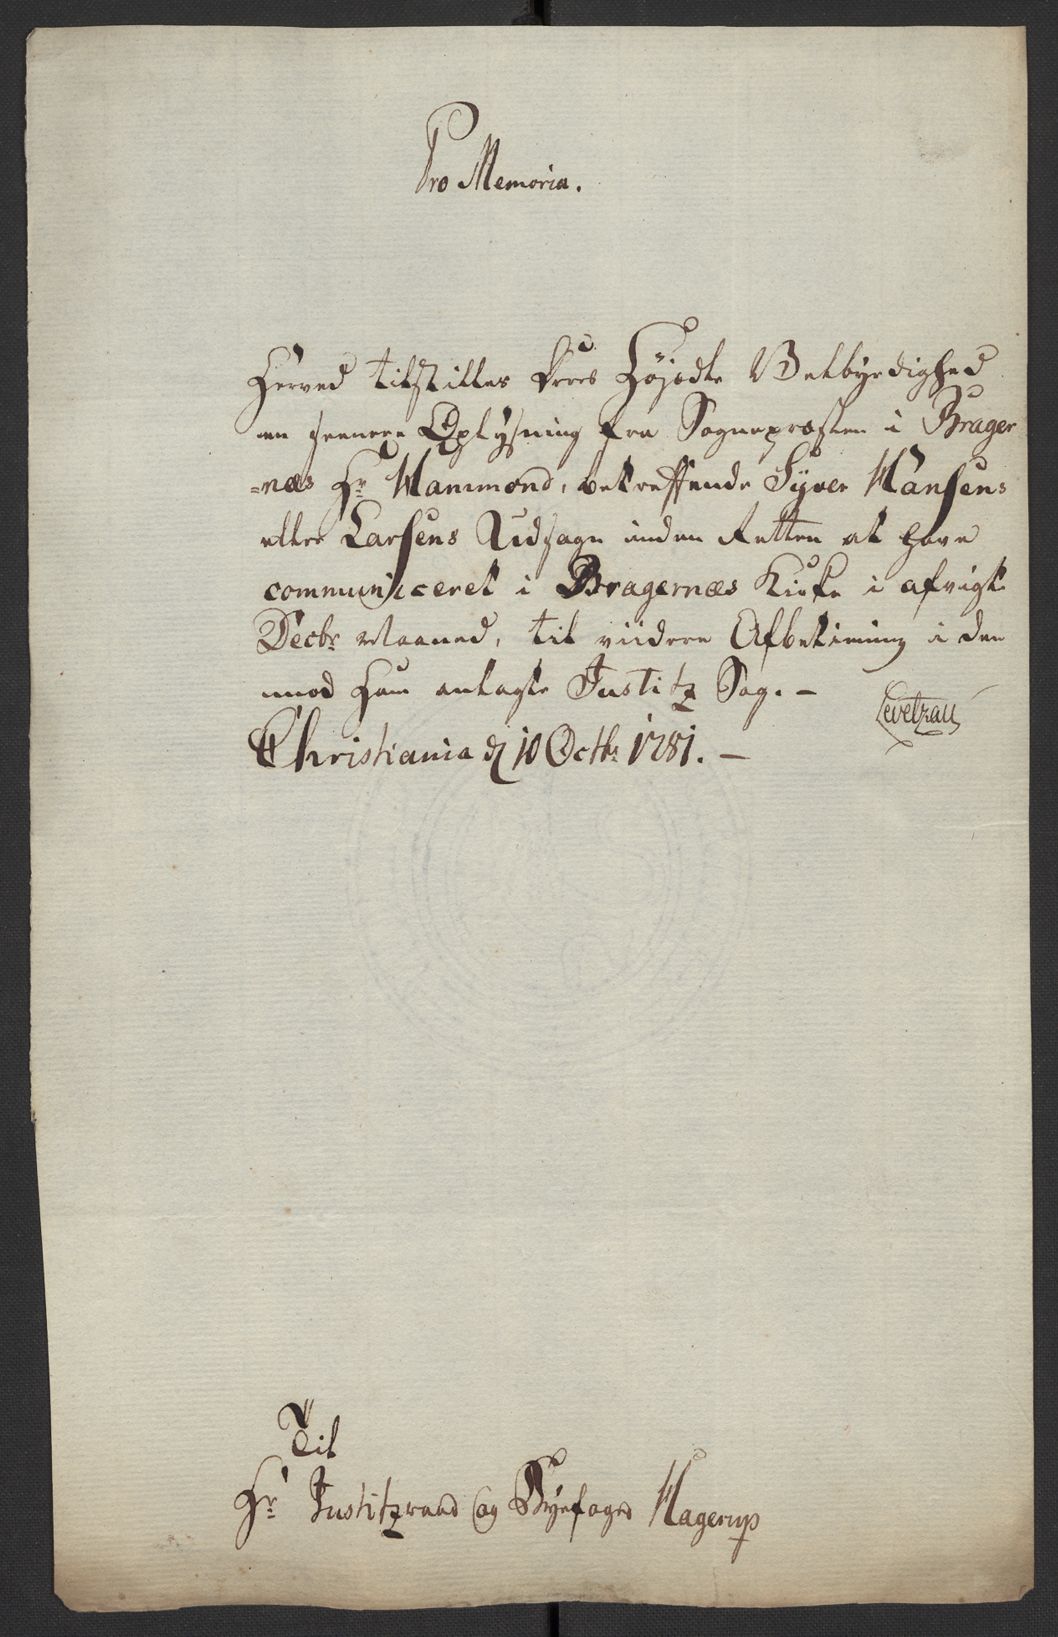 Pro Memoria.
Herved tilstilles Deres Høyædle Velbyrdighed
en seenere Oplysning fra Sognepræsten i Brager
=næs Hr Hammond, betreffende Syver Hansens
eller Larsens Udsagn inden Retten at have
communiceret i Bragernæs Kirke i afvigte
Decbr Maaned, til viidere Afbetiening i den
imod ham anlagte Justitz Sag. –
Levetzau
Christiania d 10 Octbr 1781. –
Til
Hr Justitzraad og Byefoged Hagerup